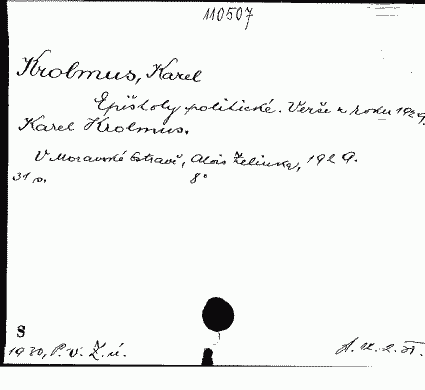 110507
Krolmus, Karel
Epištoly politické. Verše z roku 1929.
Karel Krolmus.
V Moravské Ostravě, Alois Želinka, 1929.
31 s. 8°
S
1930, P. v. Z. ú.